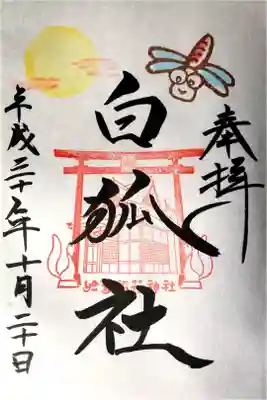 奉拝
白狐社
平成三十年十月二十日